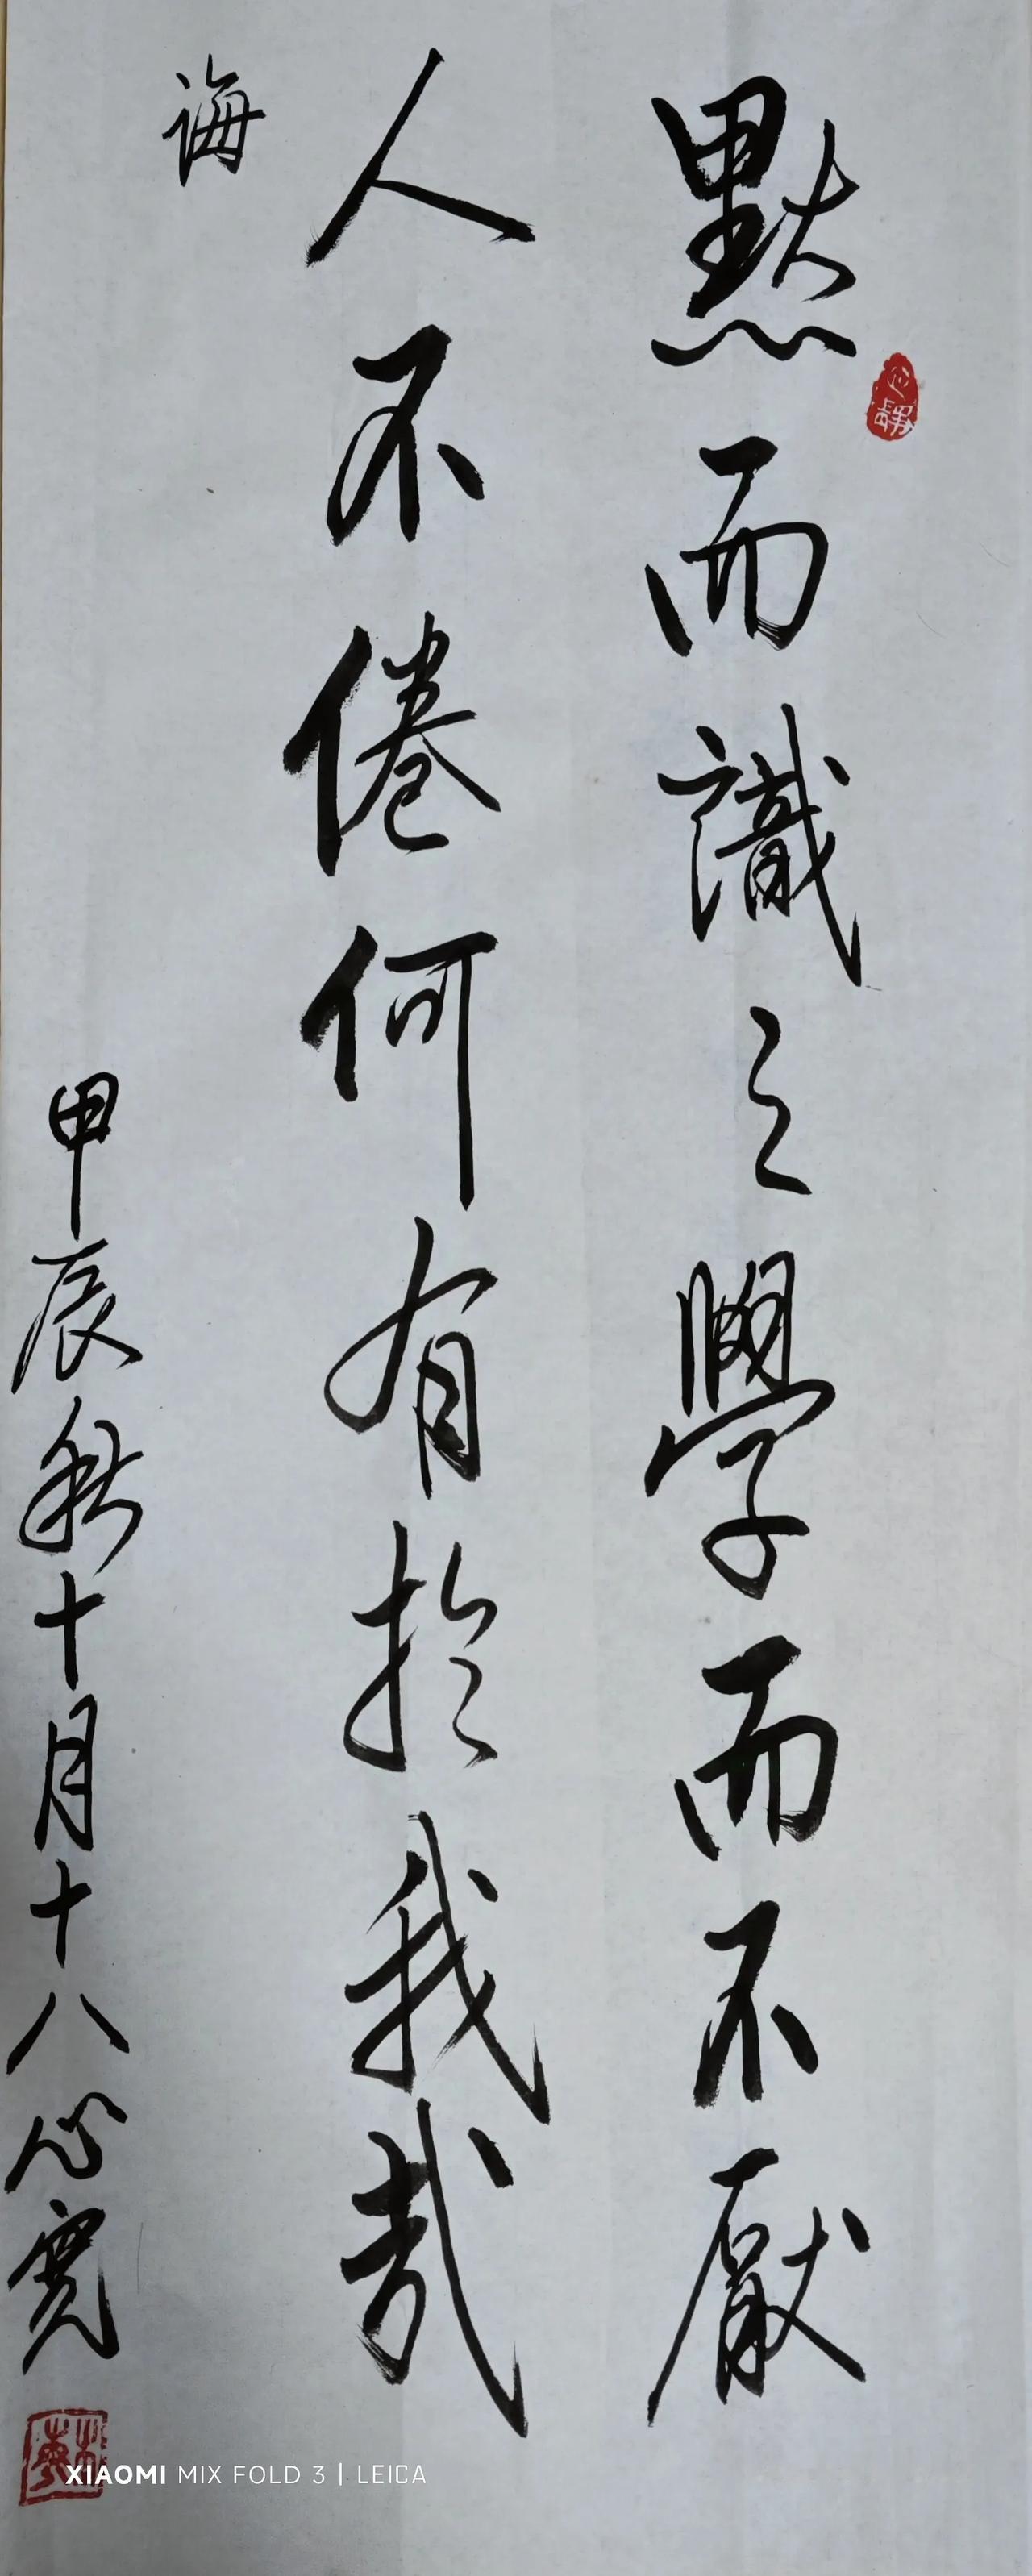 默而識之學而不厭
人不倦何有於我哉
誨
甲辰秋十月十八心寬
XIAOMI MIX FOLD 3 | LEICA